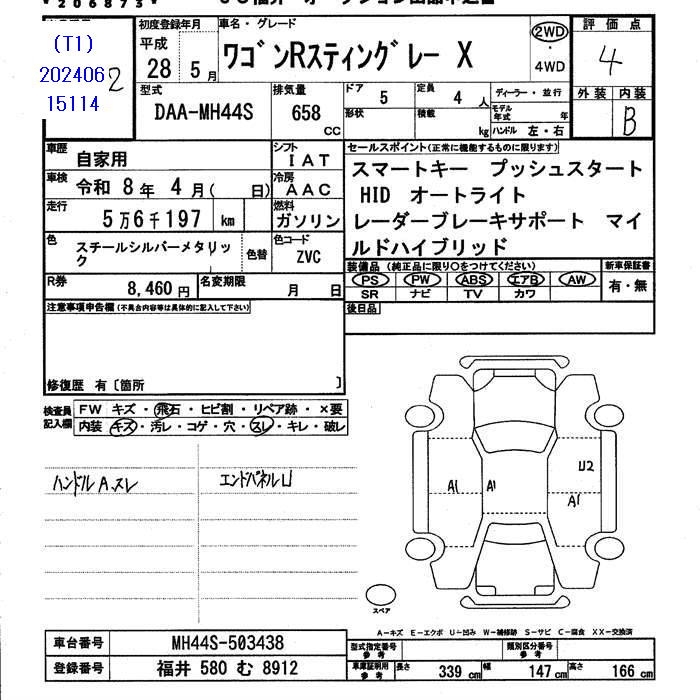 206873
(T1)
202406 2
15114
初度登録年月
平成
28 年 5 月
車名・グレード
ワゴンRスティングレー X
2WD
・
4WD
評価点
4
型式
DAA-MH44S
排気量
658 CC
ドア 5
定員 4 人
形状
積載 kg
ディーラー・並行
モデル年式 年
ハンドル 左・右
外装 内装
B
車歴 自家用
シフト IAT
車検 令和 8年 4月( 日)
冷房 AAC
走行 5万6千197 km
燃料 ガソリン
色 スチールシルバーメタリック
色替
色コード ZVC
R券 8,460 円
名変期限 月 日
セールスポイント(正常に機能するものに限ります)
スマートキー プッシュスタート
HID オートライト
レーダーブレーキサポート マイ
ルドハイブリッド
装備品 (純正品に限り○をつけてください)
新車保証書
PS PW ABS エアB AW
有・無
SR ナビ TV カワ
後日品
注意事項申告欄(不具合内容等は具体的に記入して下さい)
修復歴 有〔箇所 〕
検査員記入欄
FW キズ・飛石・ヒビ割・リペア跡・×要
内装 キズ・汚レ・コゲ・穴・スレ・キレ・破レ
ハンドルA.スレ
エンドパネルU
A1
A1
U2
A1
スペア
A-キズ E-エクボ U-凹み W-補修跡 S-サビ C-腐食 XX-交換済
車台番号 MH44S-503438
登録番号 福井 580 む 8912
型式指定番号 参考
類別区分番号 参考
車庫証明用 参考
長さ 339 cm 幅 147 cm 高さ 166 cm